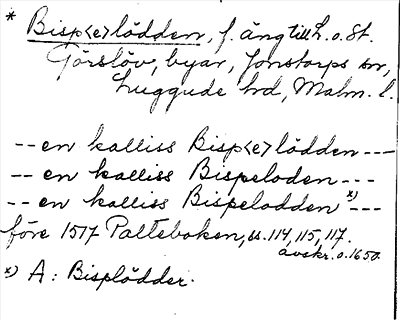 * Bisp<e>lödden, f. äng till L. o. St.
Görslöv, byar, Jonstorps sn,
Luggude hd, Malm. l.
-- en kalliss Bisp<e>lödden ---
-- en kalliss Bispeloden ---
-- en kalliss Bispelodden x) ---
före 1517 Palteboken, ss. 114, 115, 117.
avskr. o. 1650.
x) A: Bisplödder.